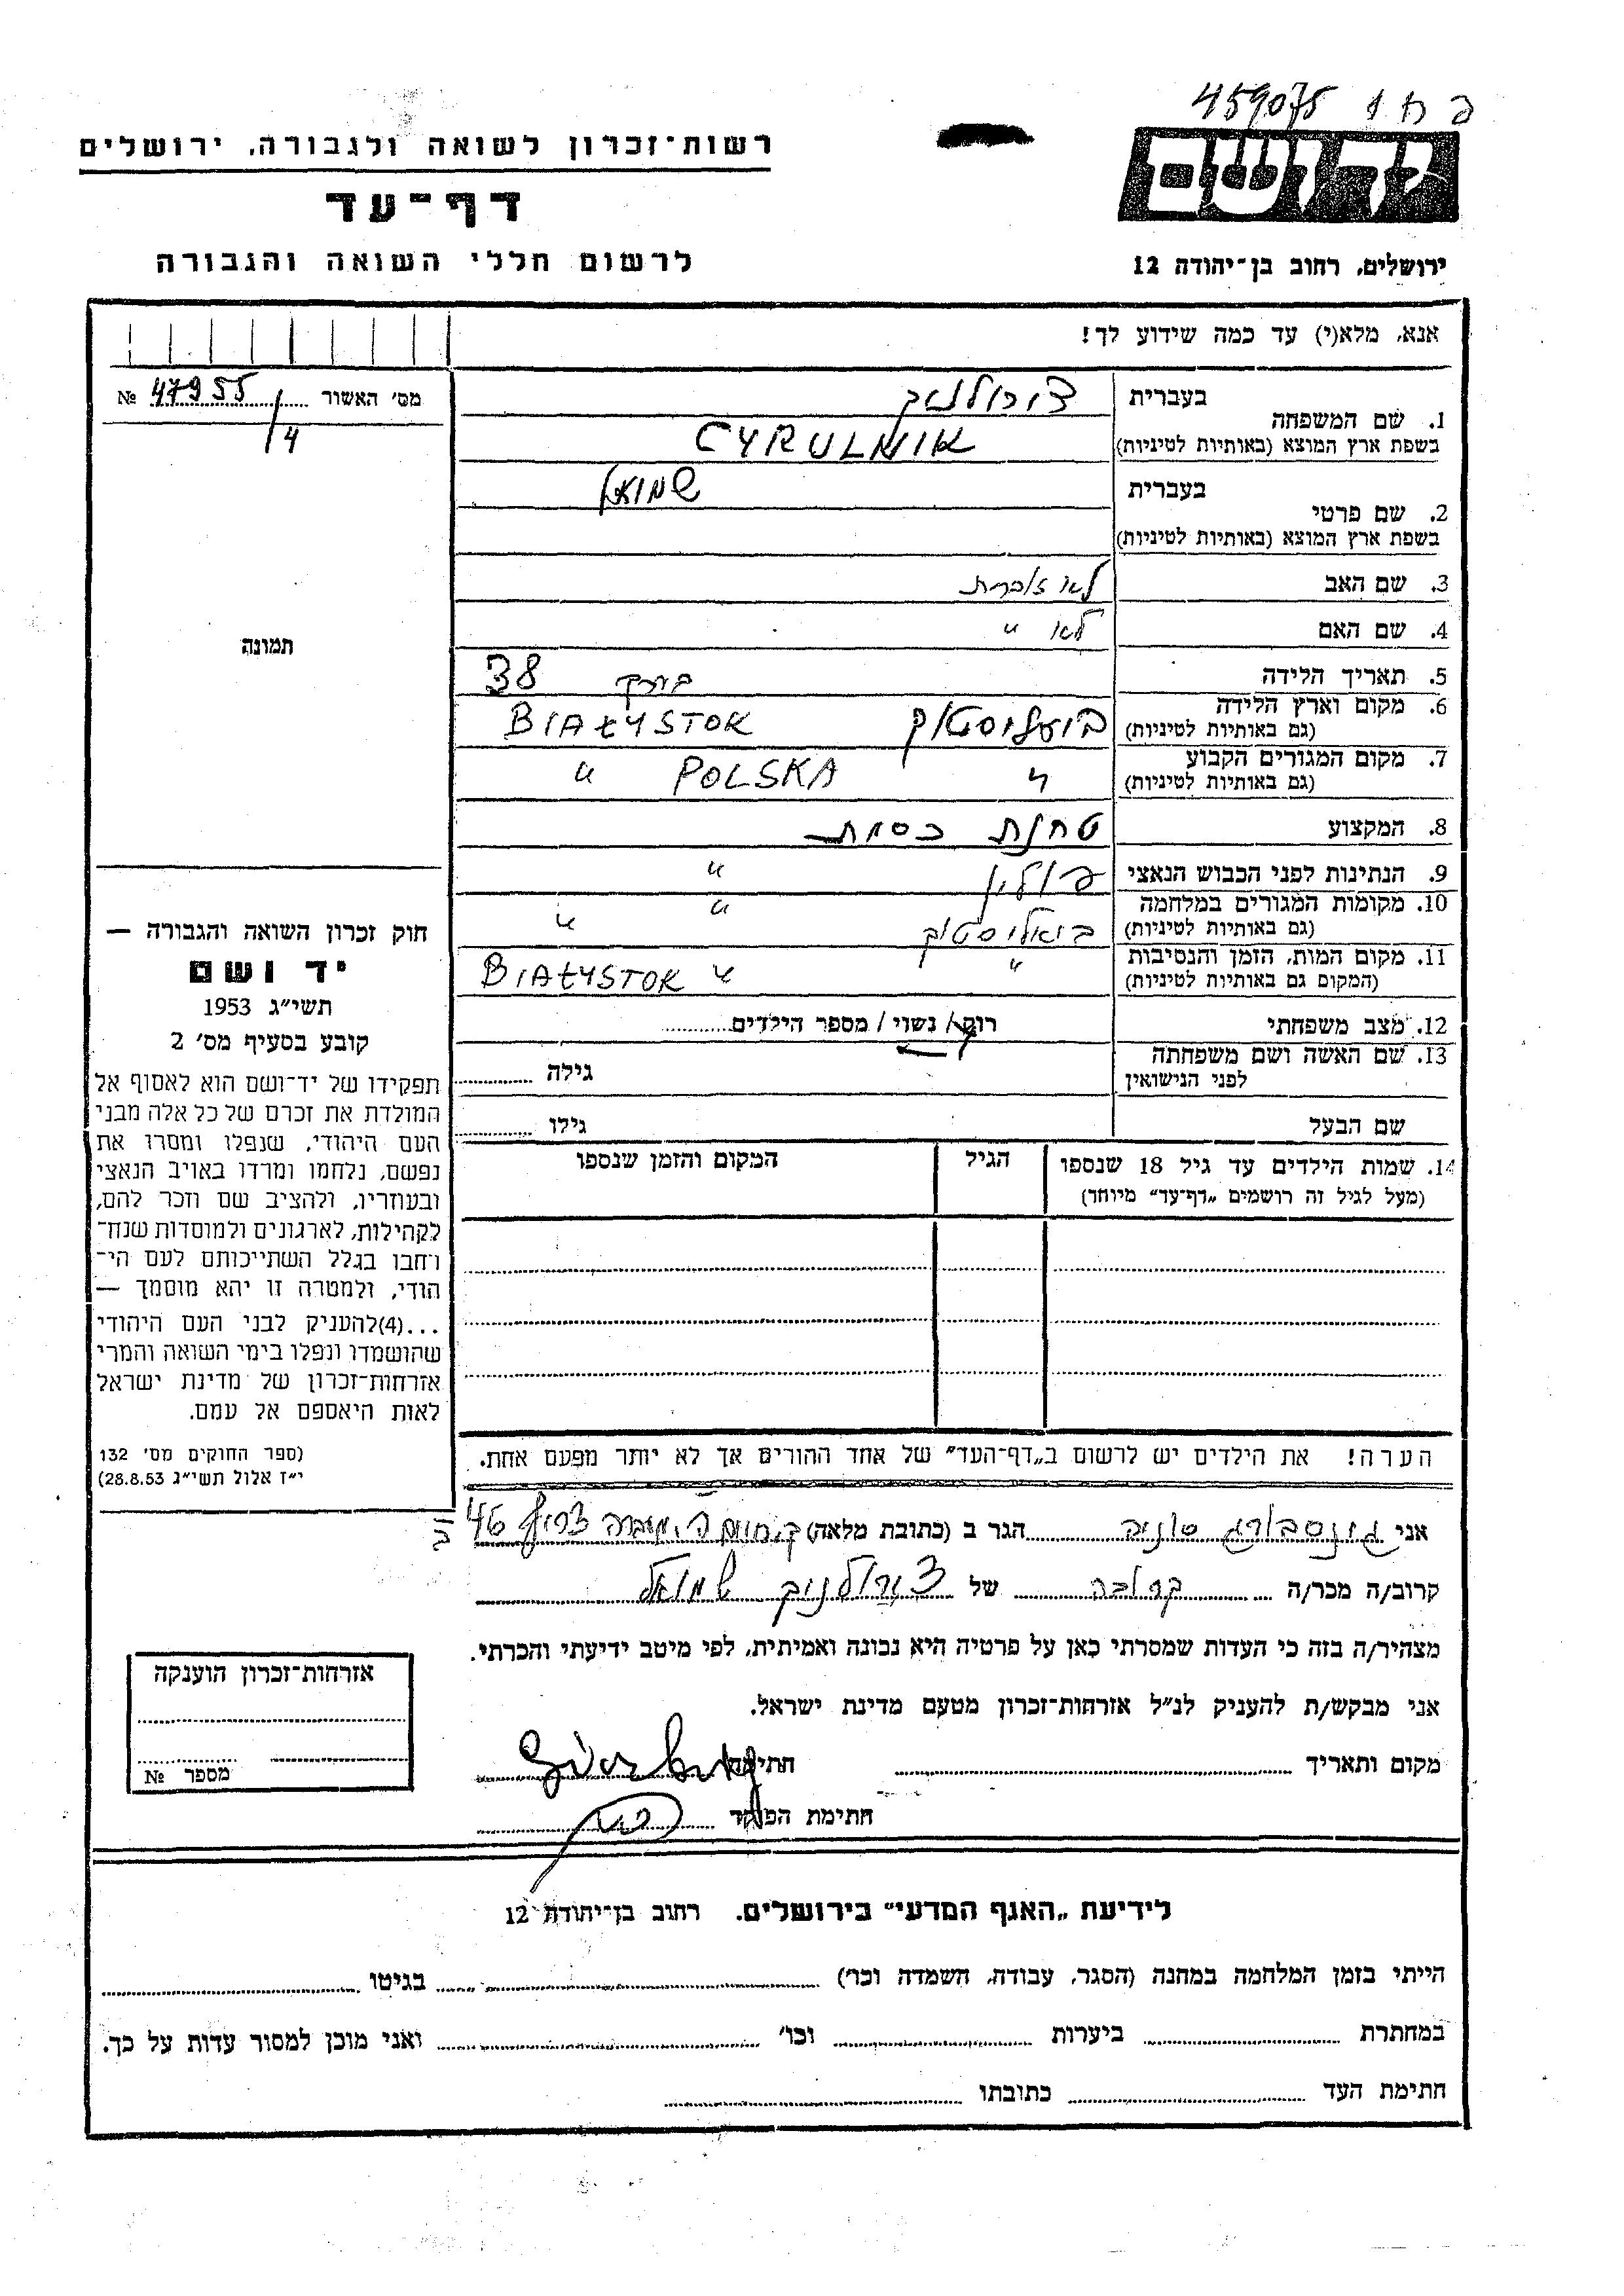 פ ח ו 459075
יד ושם
רשות־זכרון לשואה ולגבורה, ירושלים
דף־עד
לרשום חללי השואה והגבורה
ירושלים, רחוב בן־יהודה 12
אנא, מלא(י) עד כמה שידוע לך!
מס׳ האשור 47955 №
/4
1. שם המשפחה
בעברית צירולניק
בשפת ארץ המוצא (באותיות לטיניות) CYRULNIK
2. שם פרטי
בעברית שמואל
בשפת ארץ המוצא (באותיות לטיניות)
3. שם האב לא זוכרת
4. שם האם לא "
5. תאריך הלידה בערך 38
6. מקום וארץ הלידה
(גם באותיות לטיניות) ביעליסטוק BIAŁYSTOK
7. מקום המגורים הקבוע
(גם באותיות לטיניות) " POLSKA "
8. המקצוע טחנת
9. הנתינות לפני הכבוש הנאצי פולין "
10. מקומות המגורים במלחמה " 
(גם באותיות לטיניות) ביאליסטוק "
11. מקום המות, הזמן והנסיבות "
(המקום גם באותיות לטיניות) " BIAŁYSTOK
12. מצב משפחתי רוק/ נשוי/ מספר הילדים
13. שם האשה ושם משפחתה
לפני הנישואין גילה
שם הבעל גילו
14. שמות הילדים עד גיל 18 שנספו הגיל המקום והזמן שנספו
(מעל לגיל זה רושמים „דף־עד” מיוחד)
הערה! את הילדים יש לרשום ב„דף־העד” של אחד ההורים אך לא יותר מפעם אחת.
תמונה
חוק זכרון השואה והגבורה —
יד ושם
תשי״ג 1953
קובע בסעיף מס׳ 2
תפקידו של יד־ושם הוא לאסוף אל
המולדת את זכרם של כל אלה מבני
העם היהודי, שנפלו ומסרו את
נפשם, נלחמו ומרדו באויב הנאצי
ובעוזריו, ולהציב שם וזכר להם,
לקהילות, לארגונים ולמוסדות שנח־
רחבו בגלל השתייכותם לעם הי־
הודי, ולמטרה זו יהא מוסמך —
...(4)להעניק לבני העם היהודי
שהושמדו ונפלו בימי השואה והמרי
אזרחות־זכרון של מדינת ישראל
לאות היאספם אל עמם.
(ספר החוקים מס׳ 132
י״ז אלול תשי״ג 28.8.53)
אני גינסבורג סוניה הגר ב (כתובת מלאה) ק. חיים צריף 46
קרוב/ה מכר/ה קרובה של צירולניק שמואל
מצהיר/ה בזה כי העדות שמסרתי כאן על פרטיה היא נכונה ואמיתית, לפי מיטב ידיעתי והכרתי.
אני מבקש/ת להעניק לנ״ל אזרחות־זכרון מטעם מדינת ישראל.
מקום ותאריך חתימה
חתימת הפוקד
אזרחות־זכרון הוענקה
מספר №
לידיעת „האגף המדעי” בירושלים. רחוב בן־יהודה 12
הייתי בזמן המלחמה במחנה (הסגר, עבודה, השמדה וכו׳) בגיטו
במחתרת ביערות וכו׳ ואני מוכן למסור עדות על כך.
חתימת העד כתובתו